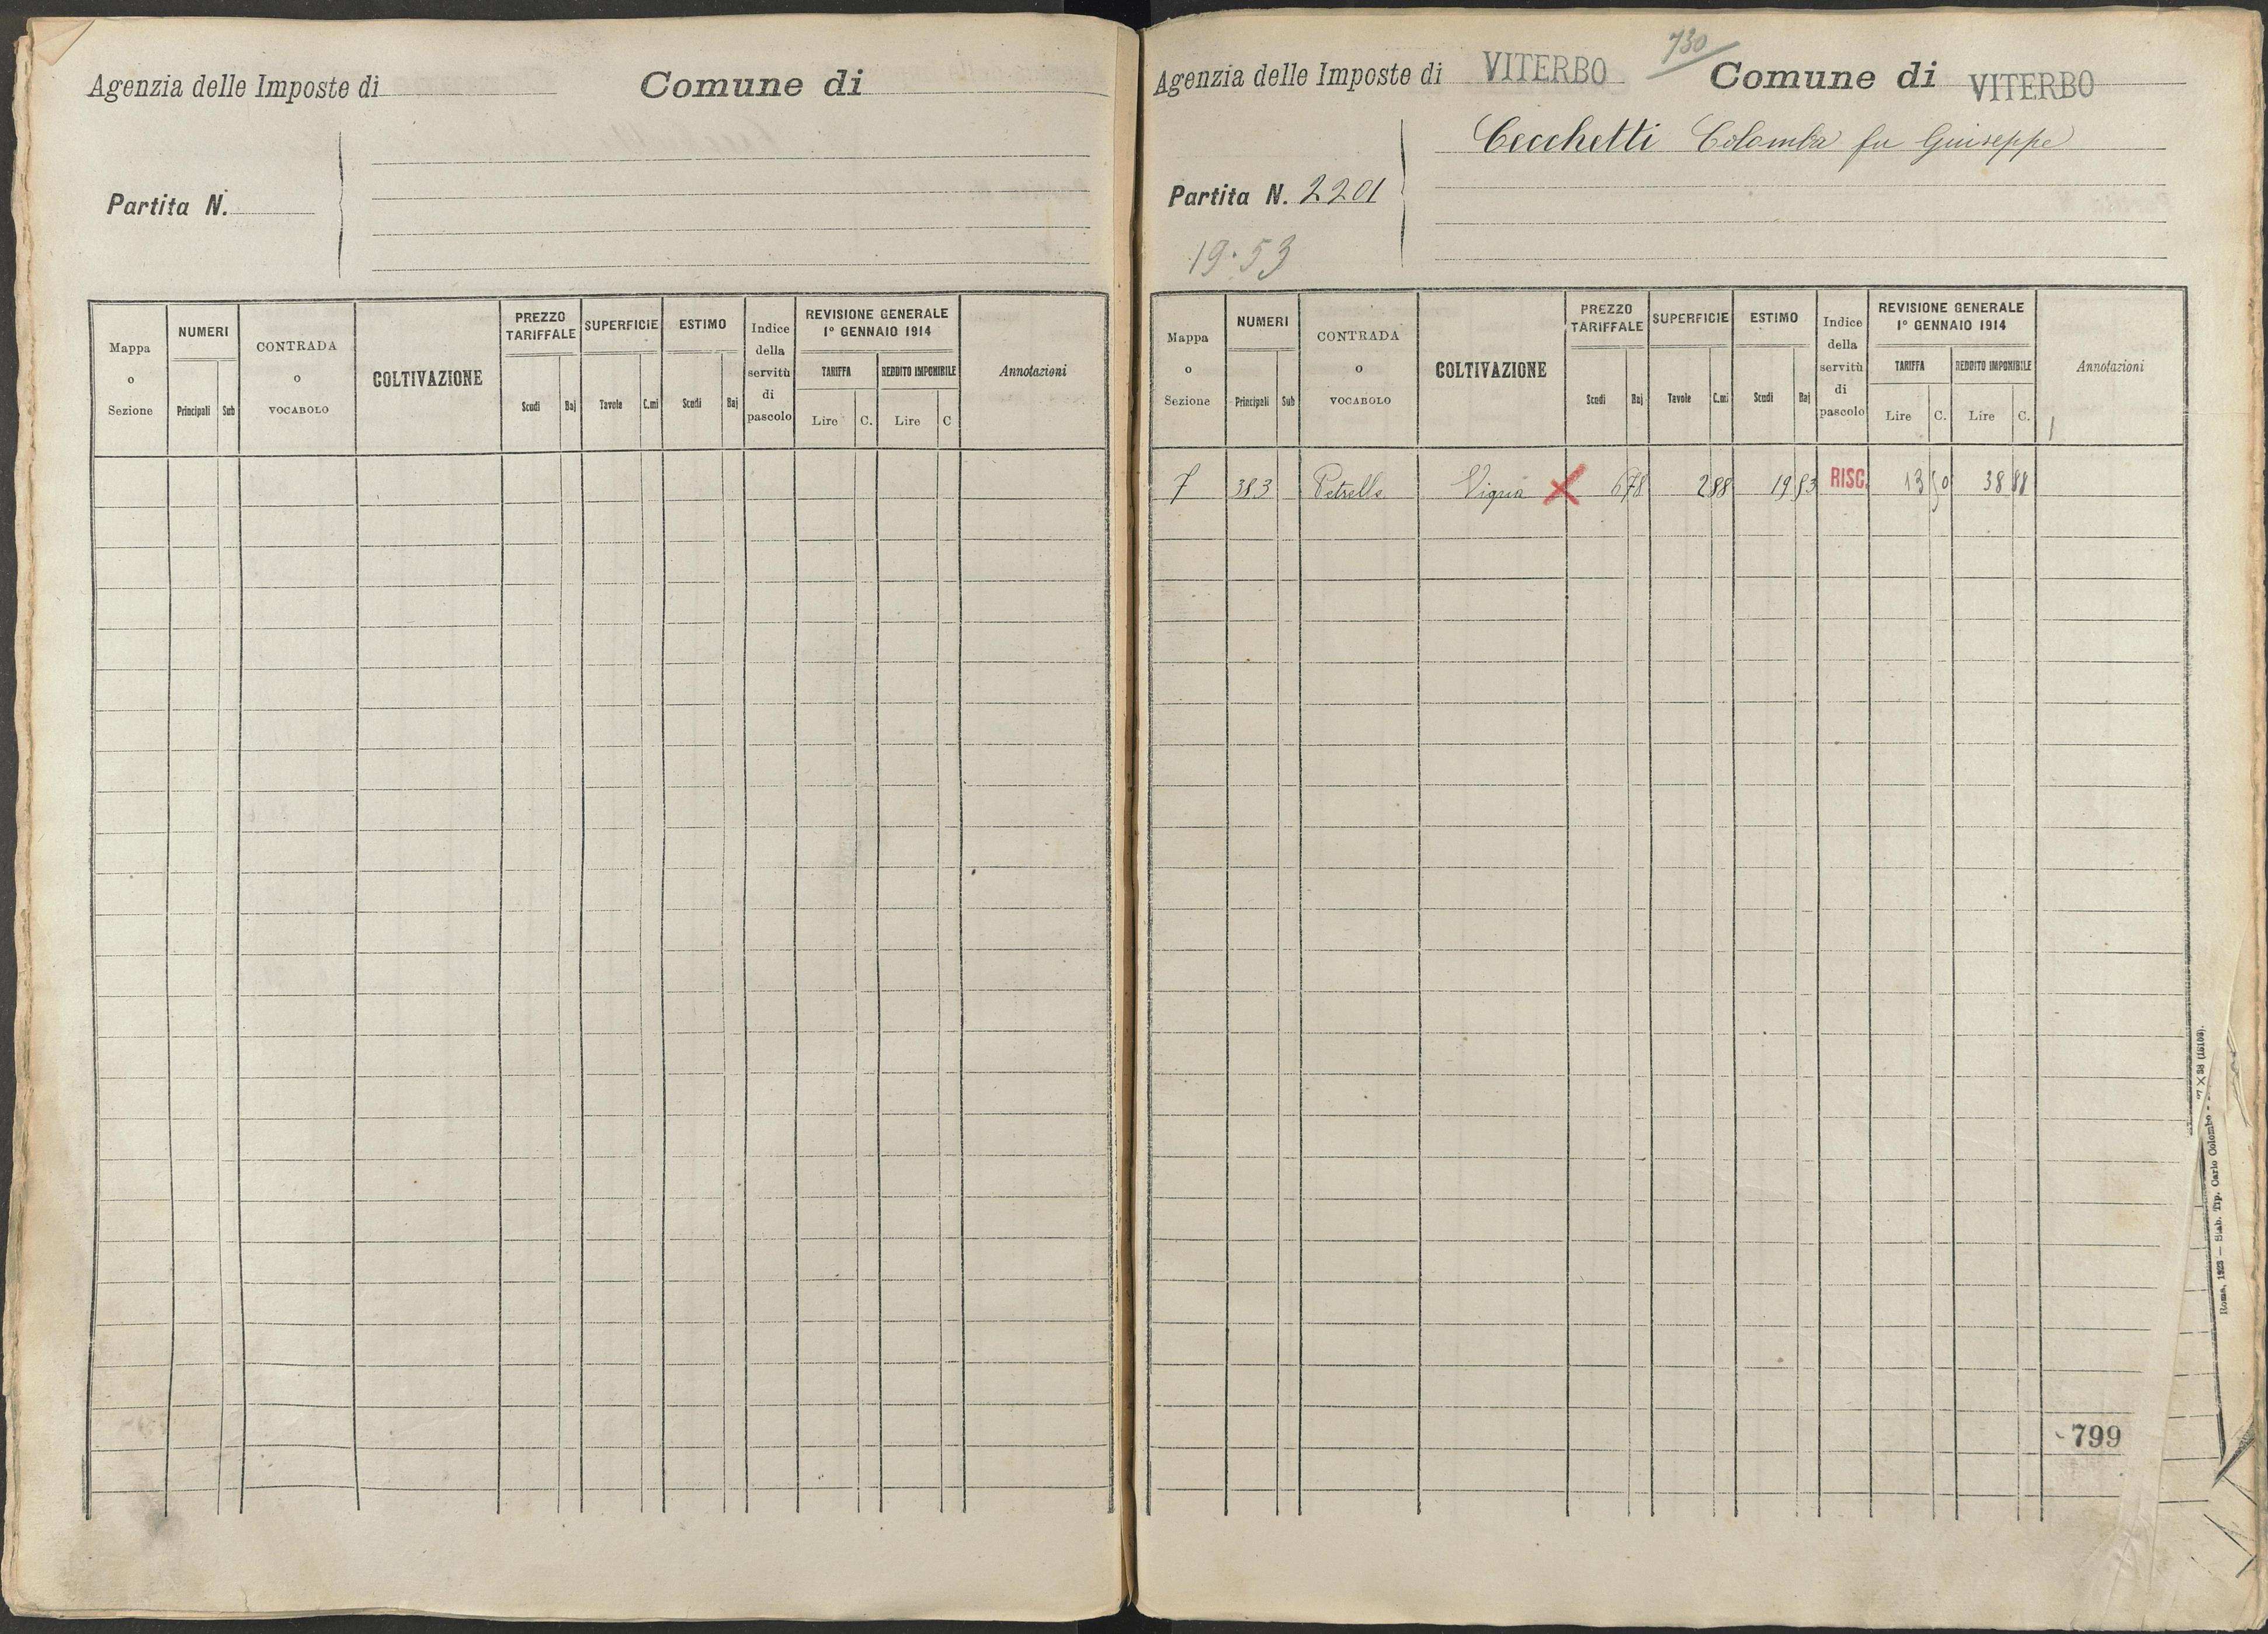 Agenzia delle Imposte di
Comune di
Partita N.
Mappa o Sezione
NUMERI
Principali Sub
CONTRADA o VOCABOLO
COLTIVAZIONE
PREZZO TARIFFALE
Scudi Baj
SUPERFICIE
Tavole C.mi
ESTIMO
Scudi Baj
Indice della servitù di pascolo
REVISIONE GENERALE
1° GENNAIO 1914
TARIFFA
Lire C.
REDDITO IMPONIBILE
Lire C
Annotazioni
730
Agenzia delle Imposte di VITERBO Comune di VITERBO
Cecchetti Colomba fu Giuseppe
Partita N. 2201
19.53
Mappa o Sezione
NUMERI
Principali Sub
CONTRADA o VOCABOLO
COLTIVAZIONE
PREZZO TARIFFALE
Scudi Baj
SUPERFICIE
Tavole C.mi
ESTIMO
Scudi Baj
Indice della servitù di pascolo
REVISIONE GENERALE
1° GENNAIO 1914
TARIFFA
Lire C.
REDDITO IMPONIBILE
Lire C.
Annotazioni
7 383 Petrella Vigna 6 78 2 88 19 53 RISC. 13 50 38 88
799
Roma, 1923 — Stab. Tip. Carlo Colombo
38 (15109).